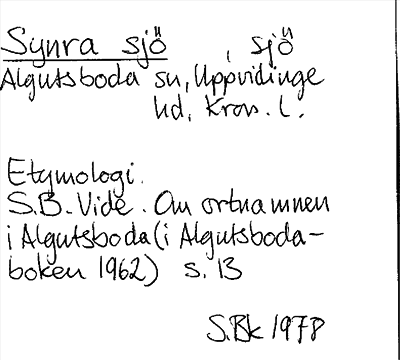 Synra sjö, sjö
Algutsboda sn, Uppvidinge
hd, Kron. l.
Etymologi.
S.B. Vide. Om ortnamnen
i Algutsboda (i Algutsboda-
boken 1962) s. 13
S.Bk 1978